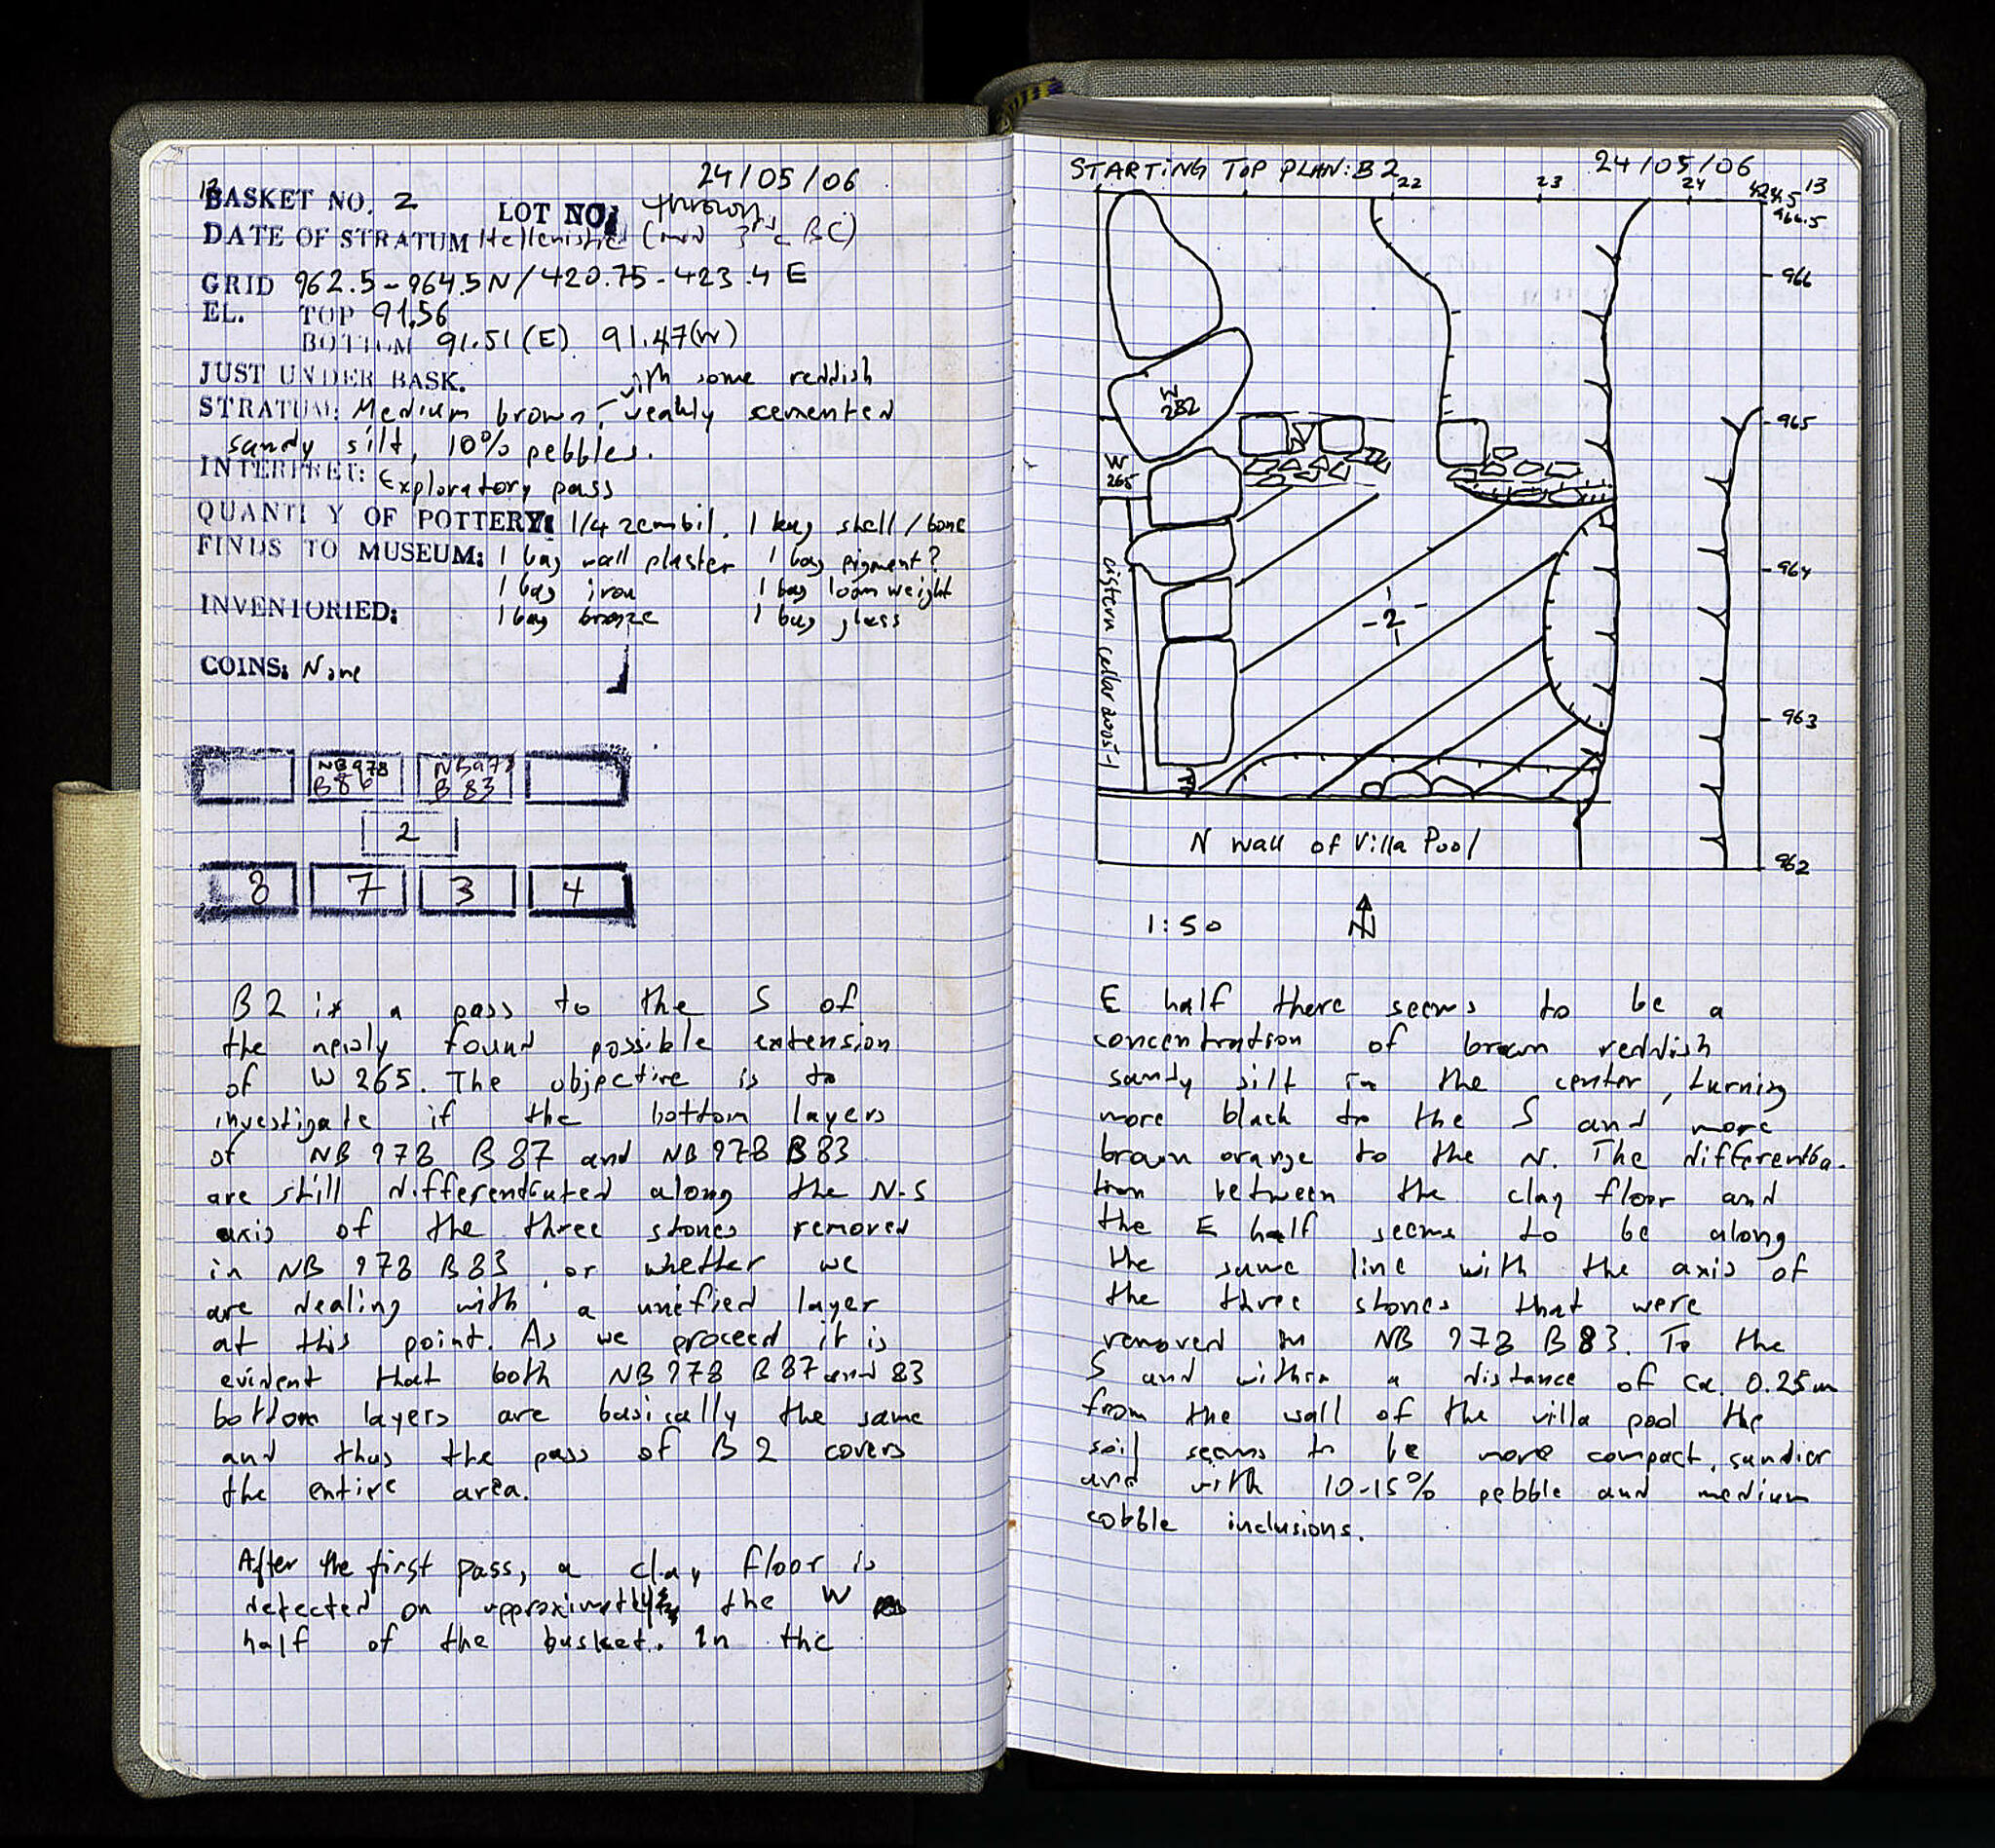 12
24/05/06
BASKET NO. 2 LOT NO: thrown
DATE OF STRATUM Hellenistic (mid 3rd c BC)
GRID 962.5-964.5N/420.75-423.4 E
EL. TOP 91.56
BOTTOM 91.51 (E) 91.47(W)
JUST UNDER BASK.
with some reddish
STRATUM: Medium brown, weakly cemented
sandy silt, 10% pebbles.
INTERPRET: Exploratory pass
QUANTI Y OF POTTERY: 1/4 zembil. 1 bag shell/bone
FINDS TO MUSEUM: 1 bag wall plaster 1 bag pigment?
1 bag iron 1 bag loom weight
INVENTORIED: 1 bag bronze 1 bag glass
COINS: None
NB978 NB978
B86 B 83
2
8 7 3 4
B2 is a pass to the S of
the newly found possible extension
of W 265. The objective is to
investigate if the bottom layers
of NB 978 B87 and NB 978 B83
are still differentiated along the N-S
axis of the three stones removed
in NB 978 B83, or whether we
are dealing with a unified layer
at this point. As we proceed it is
evident that both NB 978 B87 and 83
bottom layers are basically the same
and thus the pass of B2 covers
the entire area.
After the first pass, a clay floor is
detected on approximatly the W
half of the basket. In the
STARTING TOP PLAN: B2
24/05/06
13
22 23 24 424.5
966.5
966
W
282
965
W
265
964
-2-
cistern cellar 2005-1
963
N wall of Villa Pool
962
1:50 N
E half there seems to be a
concentration of brown reddish
sandy silt in the center, turning
more black to the S and more
brown orange to the N. The differentia-
tion between the clay floor and
the E half seems to be along
the same line with the axis of
the three stones that were
removed in NB 978 B83. To the
S and within a distance of ca. 0.25m
from the wall of the villa pool the
soil seems to be more compact, sandier
and with 10-15% pebble and medium
cobble inclusions.